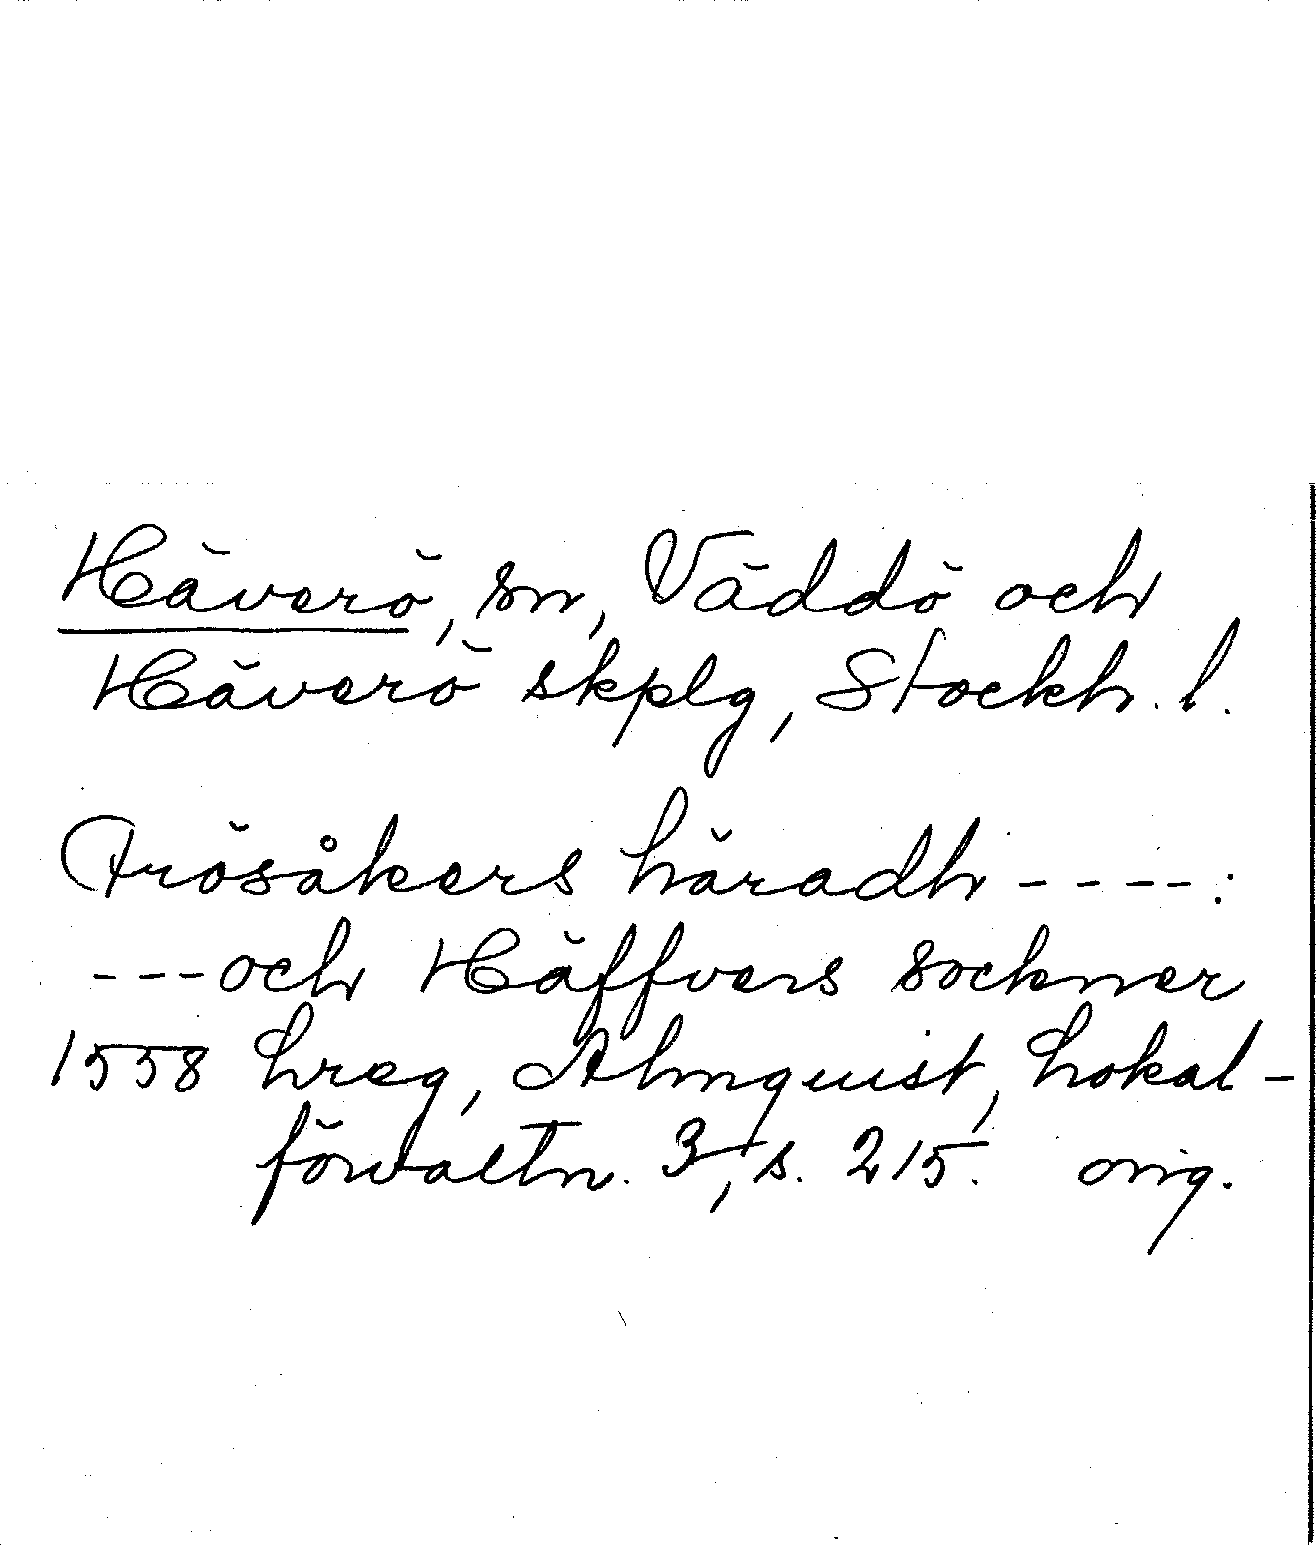 Häverö, sn, Väddö och
Häverö skplg, Stockh. l.
Frösåkers häradh ----:
---och Häffvers sockner
1558 hreg, Almquist, Lokal-
förvaltn. 3, s. 215. orig.